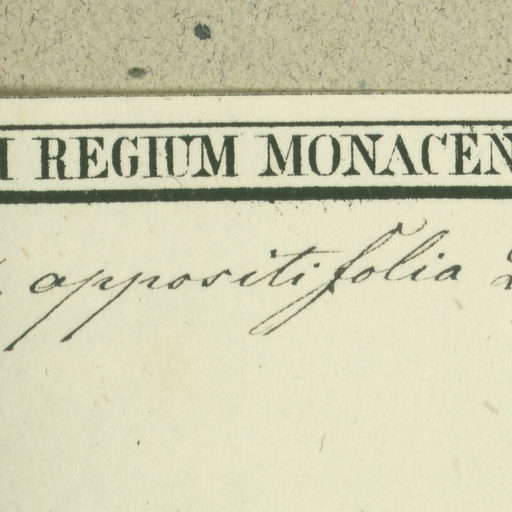 REGIUM MONACEN
oppositifolia